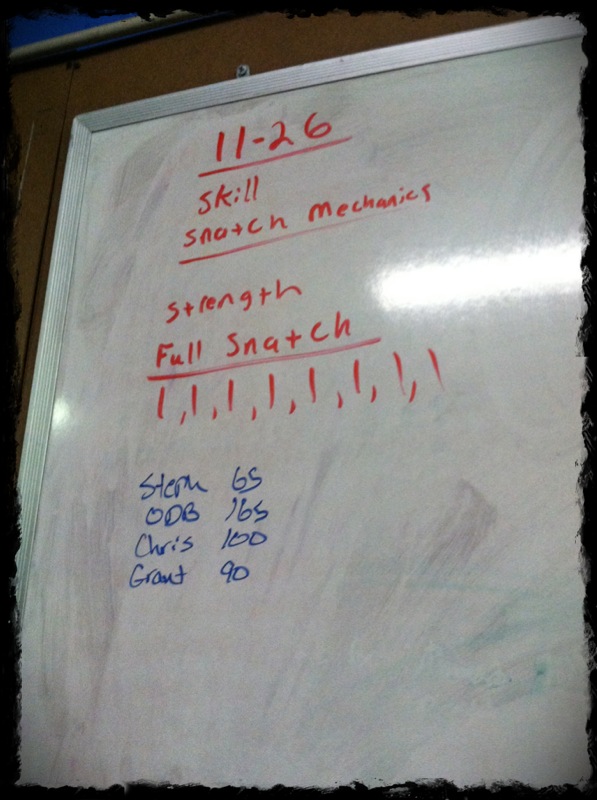 11-26
Skill
Snatch Mechanics
Strength
Full Snatch
1,1,1,1,1,1,1,1
Steph 65
ODB 165
Chris 100
Grant 90